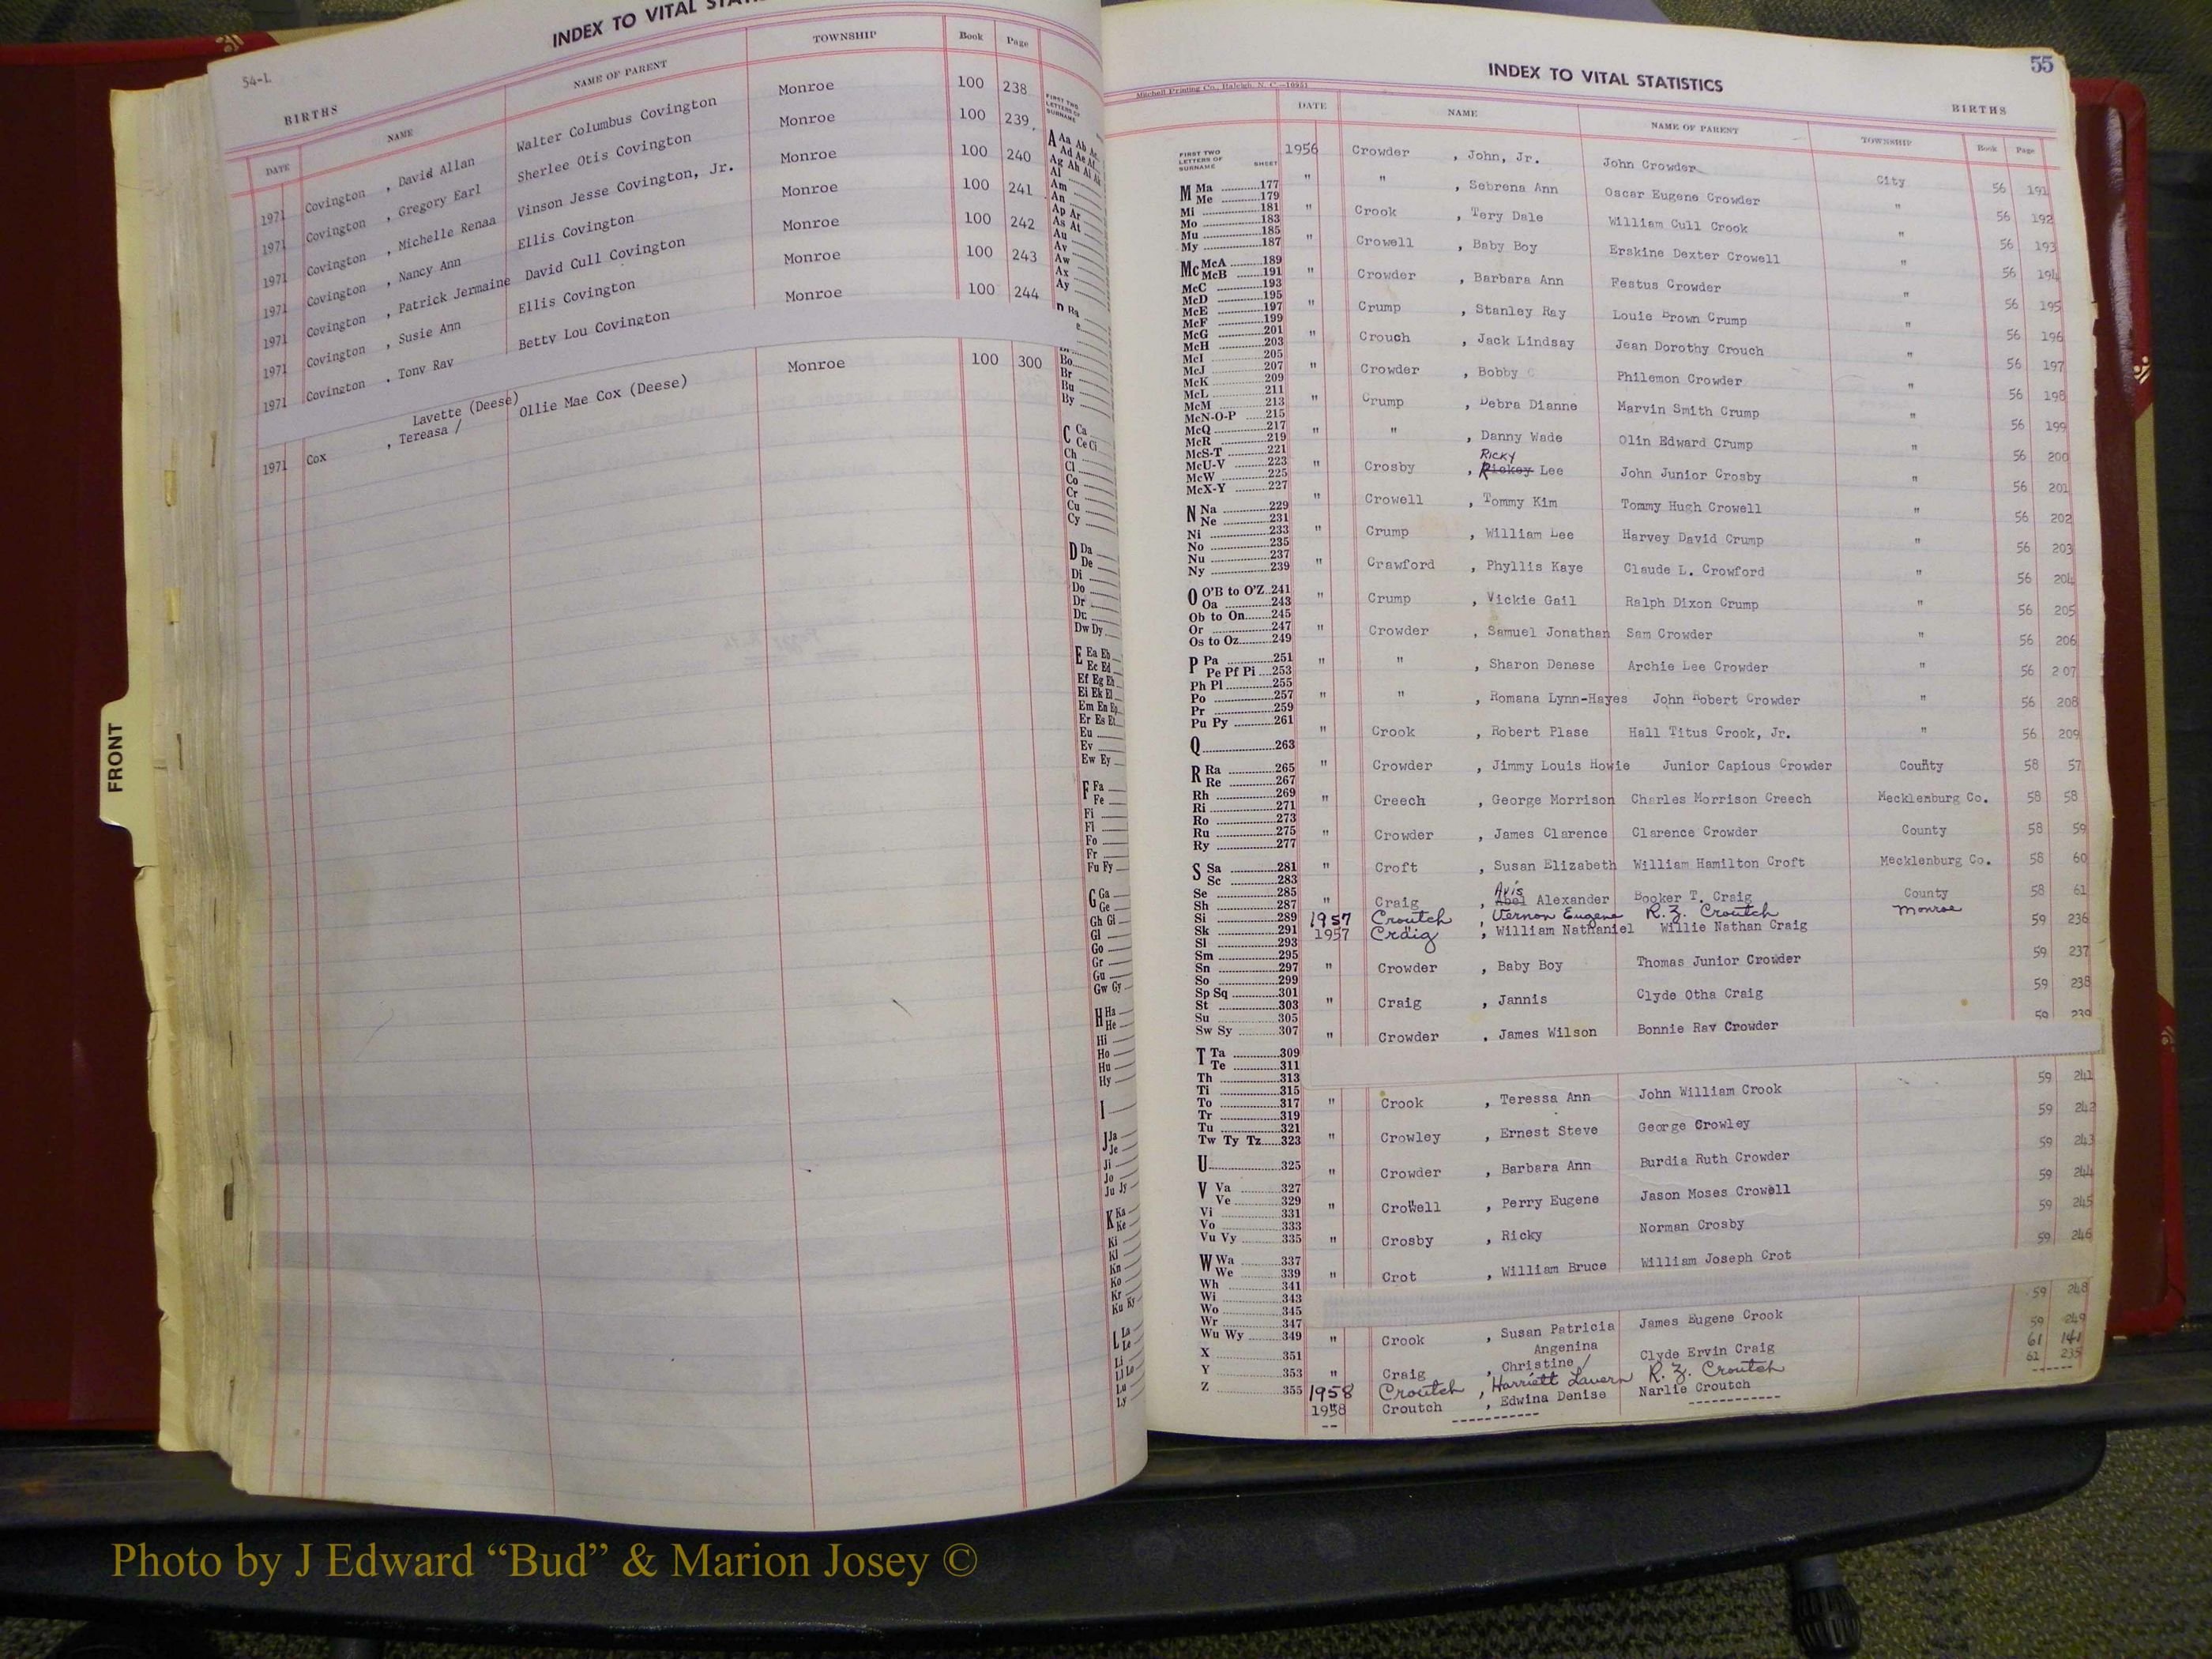 54-L
INDEX TO VITAL
BIRTHS
DATE NAME NAME OF PARENT TOWNSHIP Book Page
1971 Covington , David Allan Walter Columbus Covington Monroe 100 238
1971 Covington , Gregory Earl Sherlee Otis Covington Monroe 100 239
1971 Covington , Michelle Renaa Vinson Jesse Covington, Jr. Monroe 100 240
1971 Covington , Nancy Ann Ellis Covington Monroe 100 241
1971 Covington , Patrick Jermaine David Cull Covington Monroe 100 242
1971 Covington , Susie Ann Ellis Covington Monroe 100 243
1971 Covington , Tony Ray Betty Lou Covington Monroe 100 244
Lavette (Deese)
1971 Cox , Tereasa / Ollie Mae Cox (Deese) Monroe 100 300
FRONT
FIRST TWO
LETTERS OF
SURNAME
A Aa Ab Ac
Ad Ae Af
Ag Ah Ai Ak
Al
Am
An
Ap Ar
As At
Au
Av
Aw
Ax
Ay
Bo
Br
Bu
By
C Ca
Ce Ci
Ch
Cl
Co
Cr
Cu
Cy
D Da
De
Di
Do
Dr
Du
Dw Dy
E Ea Eb
Ec Ed
Ef Eg Eh
Ei Ek El
Em En Ep
Er Es Et
Eu
Ev
Ew Ey
F Fa
Fe
Fi
Fl
Fo
Fr
Fu Fy
G Ga
Ge
Gh Gi
Gl
Go
Gr
Gu
Gw Gy
H Ha
He
Hi
Ho
Hu
Hy
I
J Ja
Je
Ji
Jo
Ju Jy
K Ka
Ke
Ki
Kl
Kn
Ko
Kr
Ku Ky
L La
Le
Li
Ll Lo
Lu
Ly
55
INDEX TO VITAL STATISTICS
Mitchell Printing Co., Raleigh, N. C.—10951
BIRTHS
DATE NAME NAME OF PARENT TOWNSHIP Book Page
FIRST TWO
LETTERS OF
SURNAME SHEET
M Ma 177
Me 179
Mi 181
Mo 183
Mu 185
My 187
Mc McA 189
McB 191
McC 193
McD 195
McE 197
McF 199
McG 201
McH 203
McI 205
McJ 207
McK 209
McL 211
McM 213
McN-O-P 215
McQ 217
McR 219
McS-T 221
McU-V 223
McW 225
McX-Y 227
N Na 229
Ne 231
Ni 233
No 235
Nu 237
Ny 239
O O'B to O'Z 241
Oa 243
Ob to On 245
Or 247
Os to Oz 249
P Pa 251
Pe Pf Pi 253
Ph Pl 255
Po 257
Pr 259
Pu Py 261
Q 263
R Ra 265
Re 267
Rh 269
Ri 271
Ro 273
Ru 275
Ry 277
S Sa 281
Sc 283
Se 285
Sh 287
Si 289
Sk 291
Sl 293
Sm 295
Sn 297
So 299
Sp Sq 301
St 303
Su 305
Sw Sy 307
T Ta 309
Te 311
Th 313
Ti 315
To 317
Tr 319
Tu 321
Tw Ty Tz 323
U 325
V Va 327
Ve 329
Vi 331
Vo 333
Vu Vy 335
W Wa 337
We 339
Wh 341
Wi 343
Wo 345
Wr 347
Wu Wy 349
X 351
Y 353
Z 355
1956 Crowder , John, Jr. John Crowder City 56 191
" " , Sebrena Ann Oscar Eugene Crowder " 56 192
" Crook , Tery Dale William Cull Crook " 56 193
" Crowell , Baby Boy Erskine Dexter Crowell " 56 194
" Crowder , Barbara Ann Festus Crowder " 56 195
" Crump , Stanley Ray Louie Brown Crump " 56 196
" Crouch , Jack Lindsay Jean Dorothy Crouch " 56 197
" Crowder , Bobby Philemon Crowder " 56 198
" Crump , Debra Dianne Marvin Smith Crump " 56 199
" " , Danny Wade Olin Edward Crump " 56 200
Ricky
" Crosby , Rickey Lee John Junior Crosby " 56 201
" Crowell , Tommy Kim Tommy Hugh Crowell " 56 202
" Crump , William Lee Harvey David Crump " 56 203
" Crawford , Phyllis Kaye Claude L. Crowford " 56 204
" Crump , Vickie Gail Ralph Dixon Crump " 56 205
" Crowder , Samuel Jonathan Sam Crowder " 56 206
" " , Sharon Denese Archie Lee Crowder " 56 207
" " , Romana Lynn-Hayes John Robert Crowder " 56 208
" Crook , Robert Plase Hall Titus Crook, Jr. " 56 209
" Crowder , Jimmy Louis Howie Junior Capious Crowder County 58 57
" Creech , George Morrison Charles Morrison Creech Mecklenburg Co. 58 58
" Crowder , James Clarence Clarence Crowder County 58 59
" Croft , Susan Elizabeth William Hamilton Croft Mecklenburg Co. 58 60
Avis
" Craig , Abel Alexander Booker T. Craig County 58 61
1957 Croutch , Vernon Eugene R. Z. Croutch Monroe
1957 Craig , William Nathaniel Willie Nathan Craig 59 236
" Crowder , Baby Boy Thomas Junior Crowder 59 237
" Craig , Jannis Clyde Otha Craig 59 238
" Crowder , James Wilson Bonnie Ray Crowder 59 239
" Crook , Teressa Ann John William Crook 59 241
" Crowley , Ernest Steve George Crowley 59 242
" Crowder , Barbara Ann Burdia Ruth Crowder 59 243
" Crowell , Perry Eugene Jason Moses Crowell 59 244
" Crosby , Ricky Norman Crosby 59 245
" Crot , William Bruce William Joseph Crot 59 246
" Crook , Susan Patricia James Eugene Crook 59 248
Angenina
" Craig , Christine / Clyde Ervin Craig 59 249
1958 Croutch , Harriett Lavern R. Z. Croutch 61 141
1958 Croutch , Edwina Denise Narlie Croutch 61 235
Photo by J Edward “Bud” & Marion Josey ©